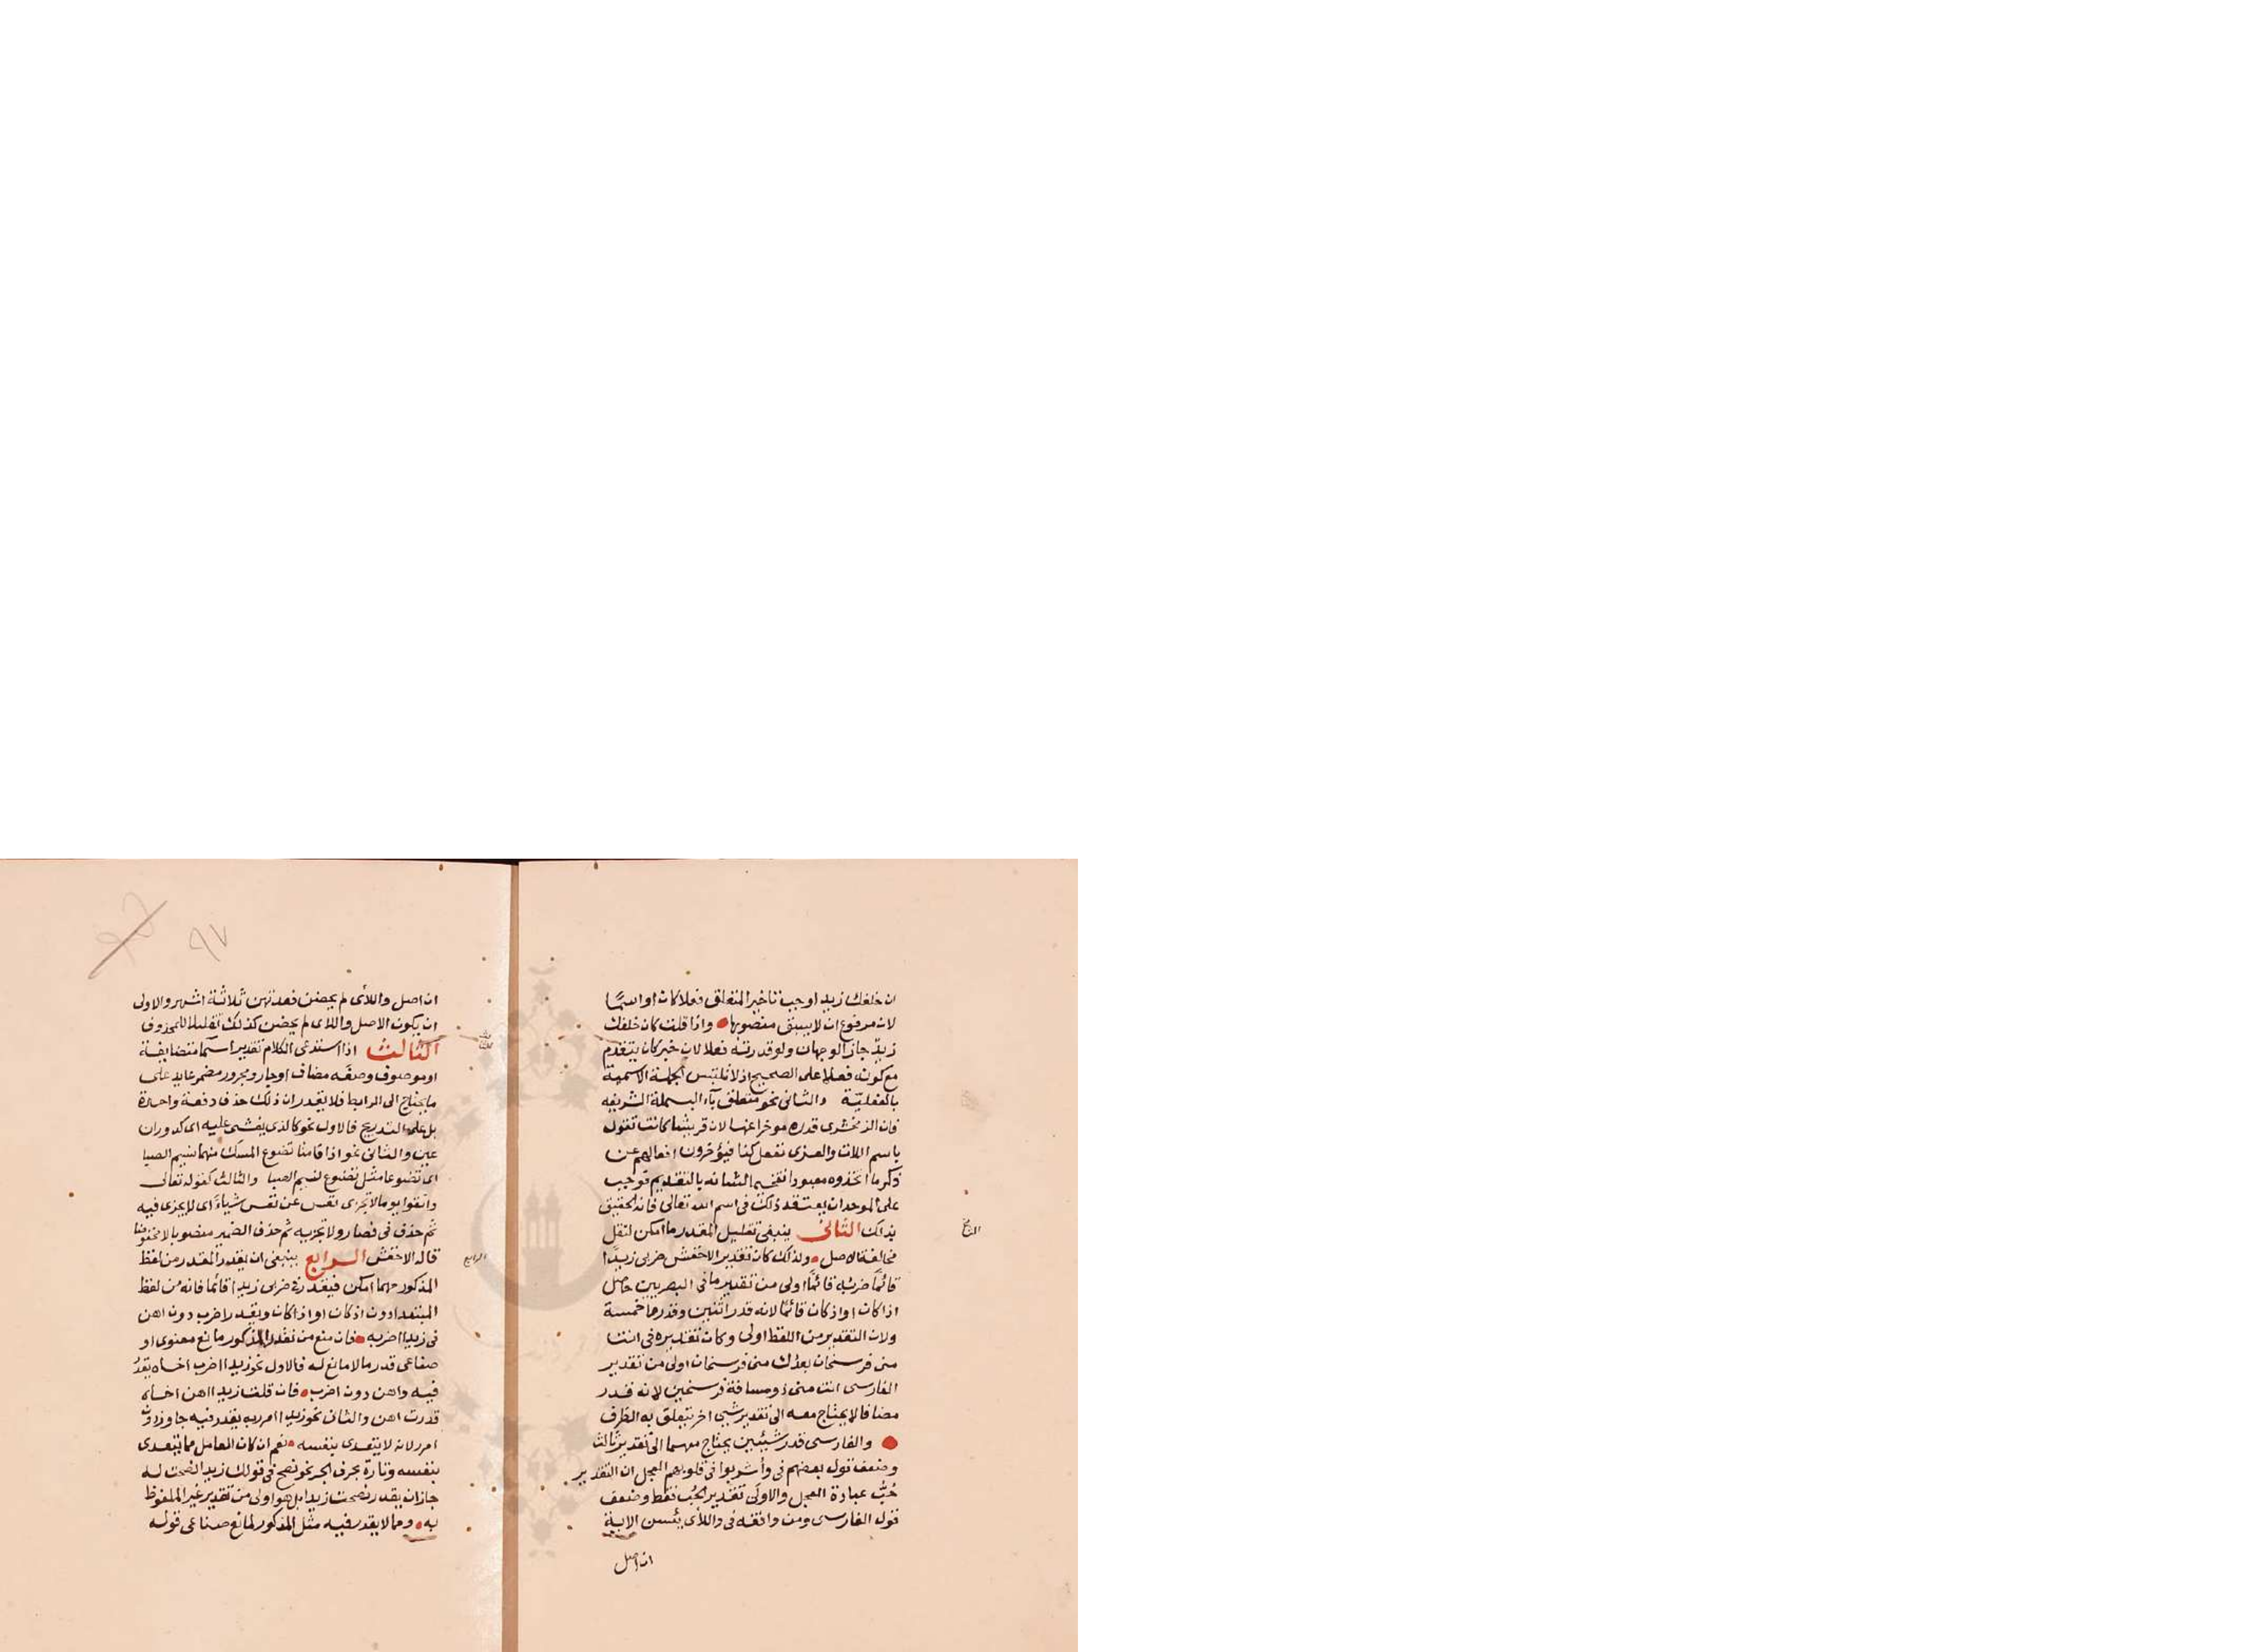 ان خلفك زيد اوجب تاخير المتعلق فعلا كان او اسمًا
لان مرفوع ان لا يسبق منصوبها واذا قلت كان خلفك
زيدٌ جاز الوجهان ولو قدرته فعلا لان خبر كان يتقدم
مع كونه فعلا على الصحيح اذ لا تلتبس الجملة الاسمية
بالفعليّة والثانى نحو متعلق بآء البسملة الشريفه
فان الزمخشرى قدره موخرا عنها لان قريشا كانت تقول
باسم اللات والعزى نفعل كذا فيؤخرون افعالهم عن
ذكر ما اتخذوه معبودا تفخيما لشانه بالتقديم فوجب
على الموحد ان يعتقد ذلك فى اسم الله تعالى فانه الحقيق
بذلك الثانى ينبغى تقليل المقدر ما امكن لتقل
مخالفة الاصل ولذلك كان تقدير الاخفش ضربى زيدًا
قائمًا ضربُه قائمًا اولى من تقدير باقى البصريين حاصل
اذا كان او اذ كان قائمًا لانه قدر اثنين وقدروا خمسة
ولان التقدير من اللفظ اولى وكان تقديره فى انت
منى فرسخان بعدك منى فرسخان اولى من تقدير
الفارسى انت منى ذو مسافة فرسخين لانه قدر
مضافا لا يحتاج معه الى تقدير شيى اخر يتعلق به الظرف
والفارسى قدر شيئين يحتاج معهما الى تقدير ثالث
وضعف قول بعضهم فى وأُشربوا فى قلوبهم العجل ان التقدير
حُبَّ عبادة العجل والاولَى تقدير الحُب فقط وضعف
قول الفارسى ومن وافقه فى واللآى يئسن الاية
ان اصل
ان اصل واللآى لم يحضن فعدتهن ثلاثة اشهر والاولى
ان يكون الاصل واللاى لم يحضن كذلك تقليلا للمحذوف
الثالث اذا استدعى الكلام تقدير اسما متضايفة
او موصوف وصفه مضاف او جار ومجرور مضمر عايد على
ما يحتاج الى الرابط فلا يقدر ان ذلك حذف دفعة واحدة
بل على التدريج فالاول نحو كالذى يغشى عليه اى كدوران
عين والثانى نحو اذا قامتا تضوع المسك منهما نسيم الصبا
اى تضوعا مثل تضوع نسيم الصبا والثالث كقوله تعالى
واتقوا يوما لا تجزى نفس عن نفس شياءً اى لا يجزى فيه
ثم حذف فى فصار ولا تجزيه ثم حذف الضمير منصوبا لا مخفوضا
قاله الاخفش الرابع ينبغى ان يقدر المقدر من لفظ
المذكور مهما امكن فيقدر فى ضربى زيدا قائما فانه من لفظ
المبتدا دون اذ كان او اذا كان ويقدر اضرب دون اهن
فى زيدا اضربه فان منع من تقدير المذكور مانع معنوى او
صناعى قدر ما لا مانع له فالاول نحو زيدا اضرب اخاه يقدرُ
فيه واهن دون اضرب فان قلت زيدا اهن اخاه
قدرت اهن والثانى نحو زيدا امرر به يقدر فيه جاوز دون
امرر لانه لا يتعدى بنفسه نعم ان كان العامل مما يتعدى
بنفسه وتارة بحرف الجر نحو نصح فى قولك زيدا نصحت له
جاز ان يقدر نصحت زيدا بل هو اولى من تقدير غير الملفوظ
به ومما لا يقدر فيه مثل المذكور لمانع صناعى قوله
الرابع
٩٧